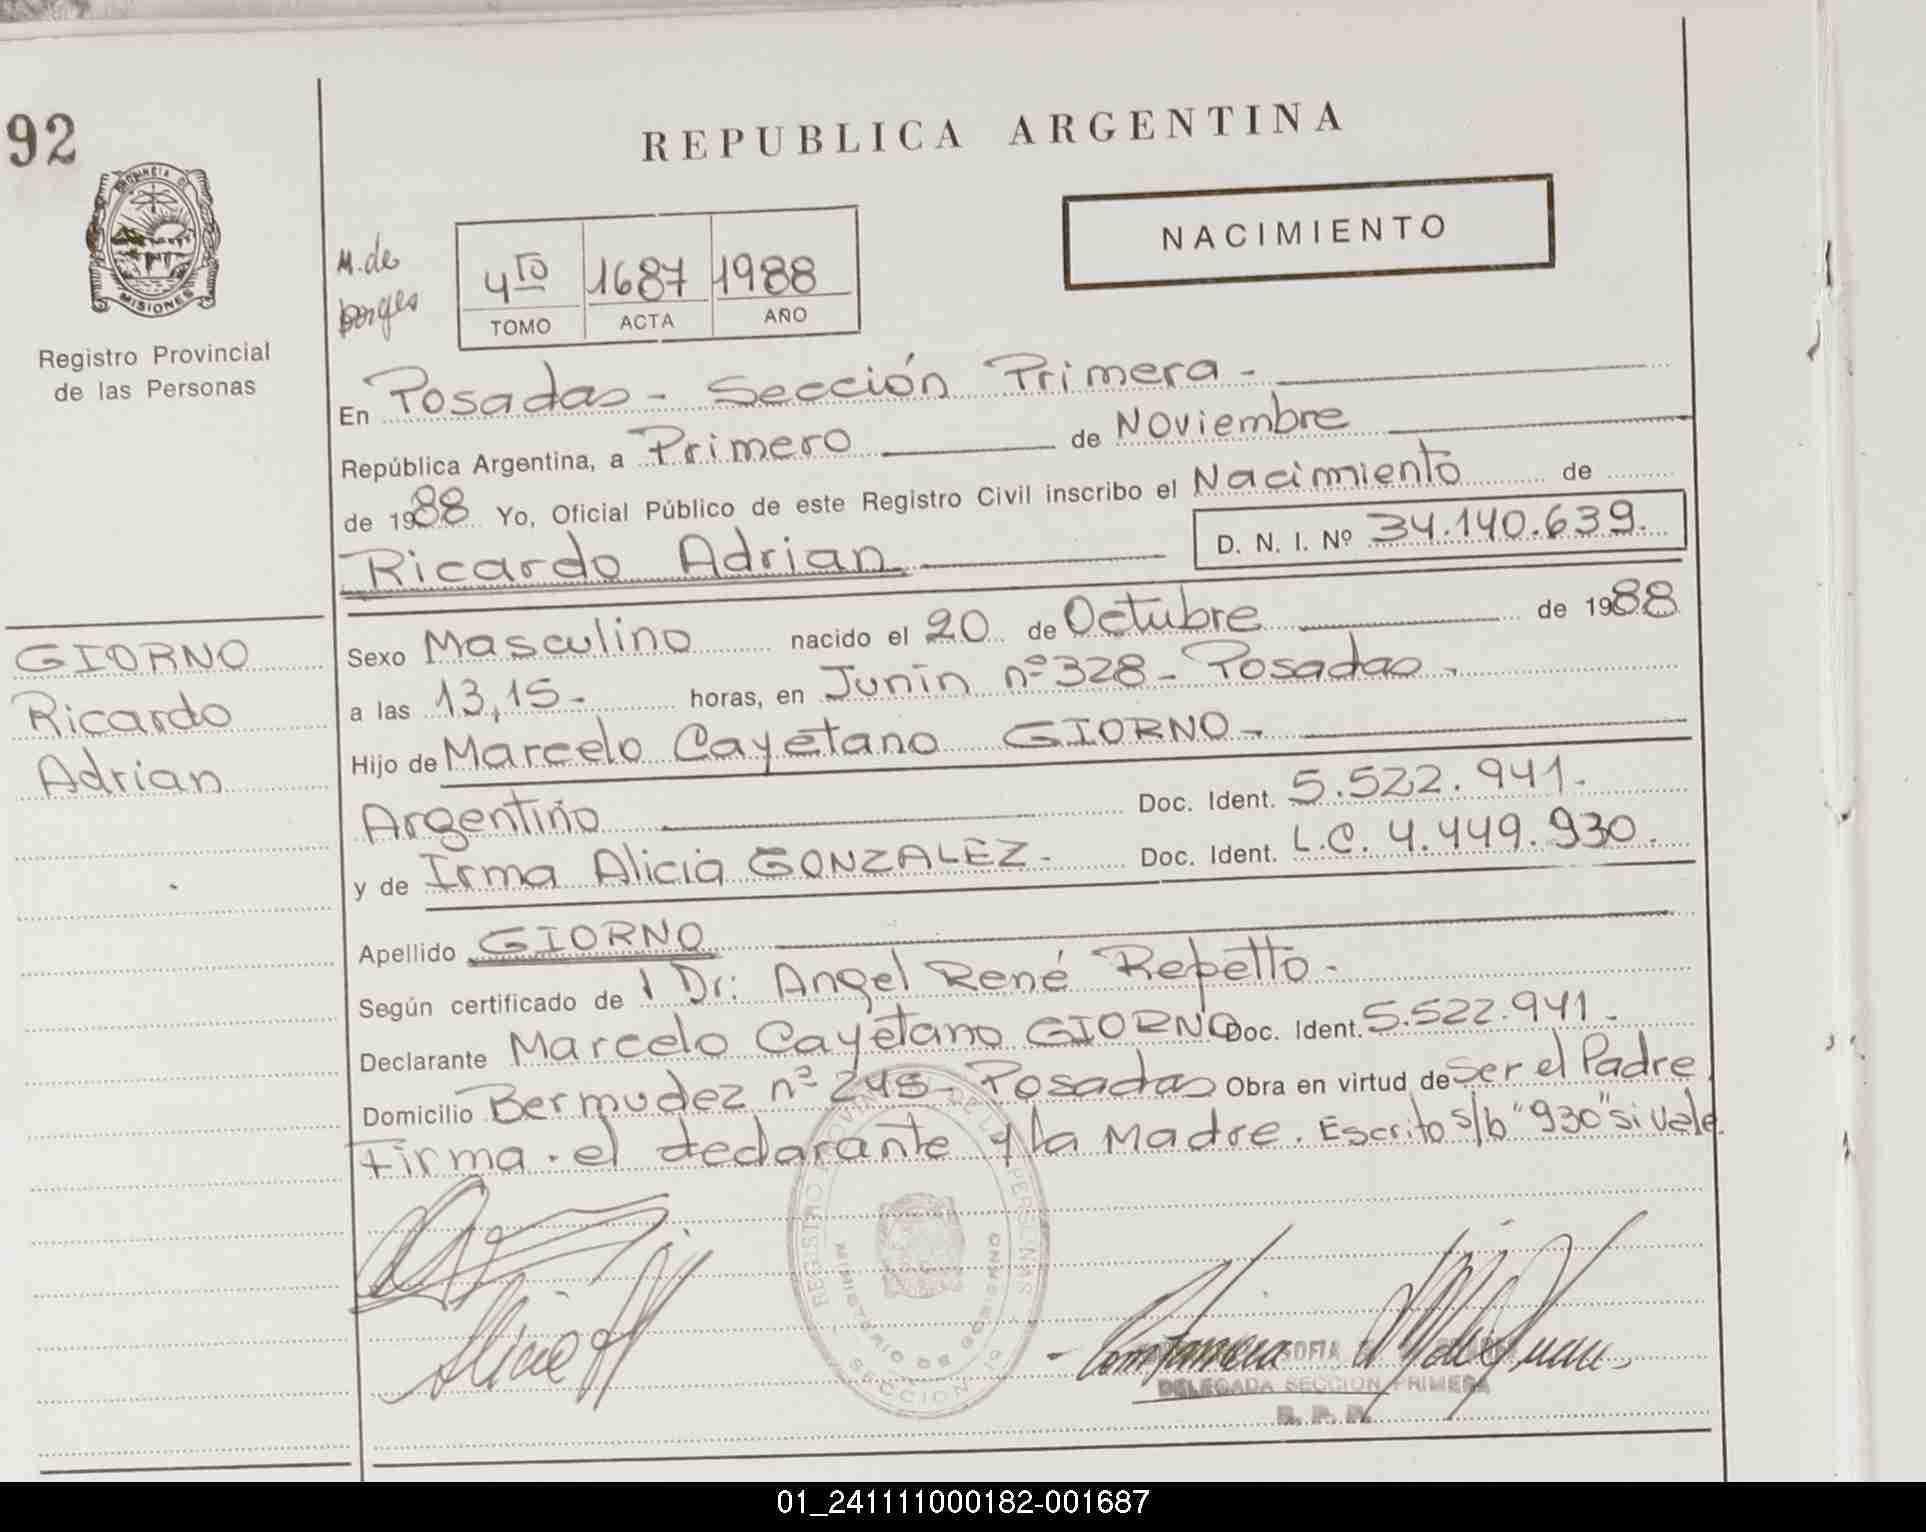 92
PROVINCIA DE
MISIONES
Registro Provincial
de las Personas
REPUBLICA ARGENTINA
NACIMIENTO
M. de
borges
4TO 1687 1988
TOMO ACTA AÑO
En Posadas - Sección Primera -
República Argentina, a Primero de Noviembre
de 1988 Yo, Oficial Público de este Registro Civil inscribo el Nacimiento de
Ricardo Adrian D. N. I. Nº 34.140.639.
GIORNO
Ricardo
Adrian
Sexo Masculino nacido el 20 de Octubre de 1988
a las 13,15- horas, en Junin nº 328 - Posadas -
Hijo de Marcelo Cayetano GIORNO -
Argentino Doc. Ident. 5.522.941.
y de Irma Alicia GONZALEZ - Doc. Ident. L.C. 4.449.930.
Apellido GIORNO
Según certificado de Dr: Angel René Repetto -
Declarante Marcelo Cayetano GIORNO Doc. Ident. 5.522.941.
Domicilio Bermudez nº 245 - Posadas Obra en virtud de Ser el Padre
Firma el declarante y la Madre. Escrito s/b "930" si vale.
REGISTRO PROVINCIAL DE LAS PERSONAS
MINISTERIO DE GOBIERNO
SECCION 1º
SOFIA
DELEGADA SECCION PRIMERA
R. P. P.
01_241111000182-001687